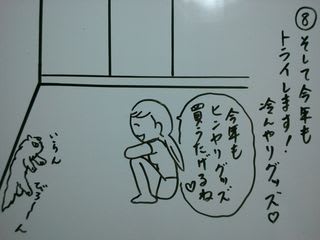 ⑧そして今年も
トライします！
冷んやりグッズ♡
今年も
ヒンヤリグッズ
買うたげるね♡
いらん